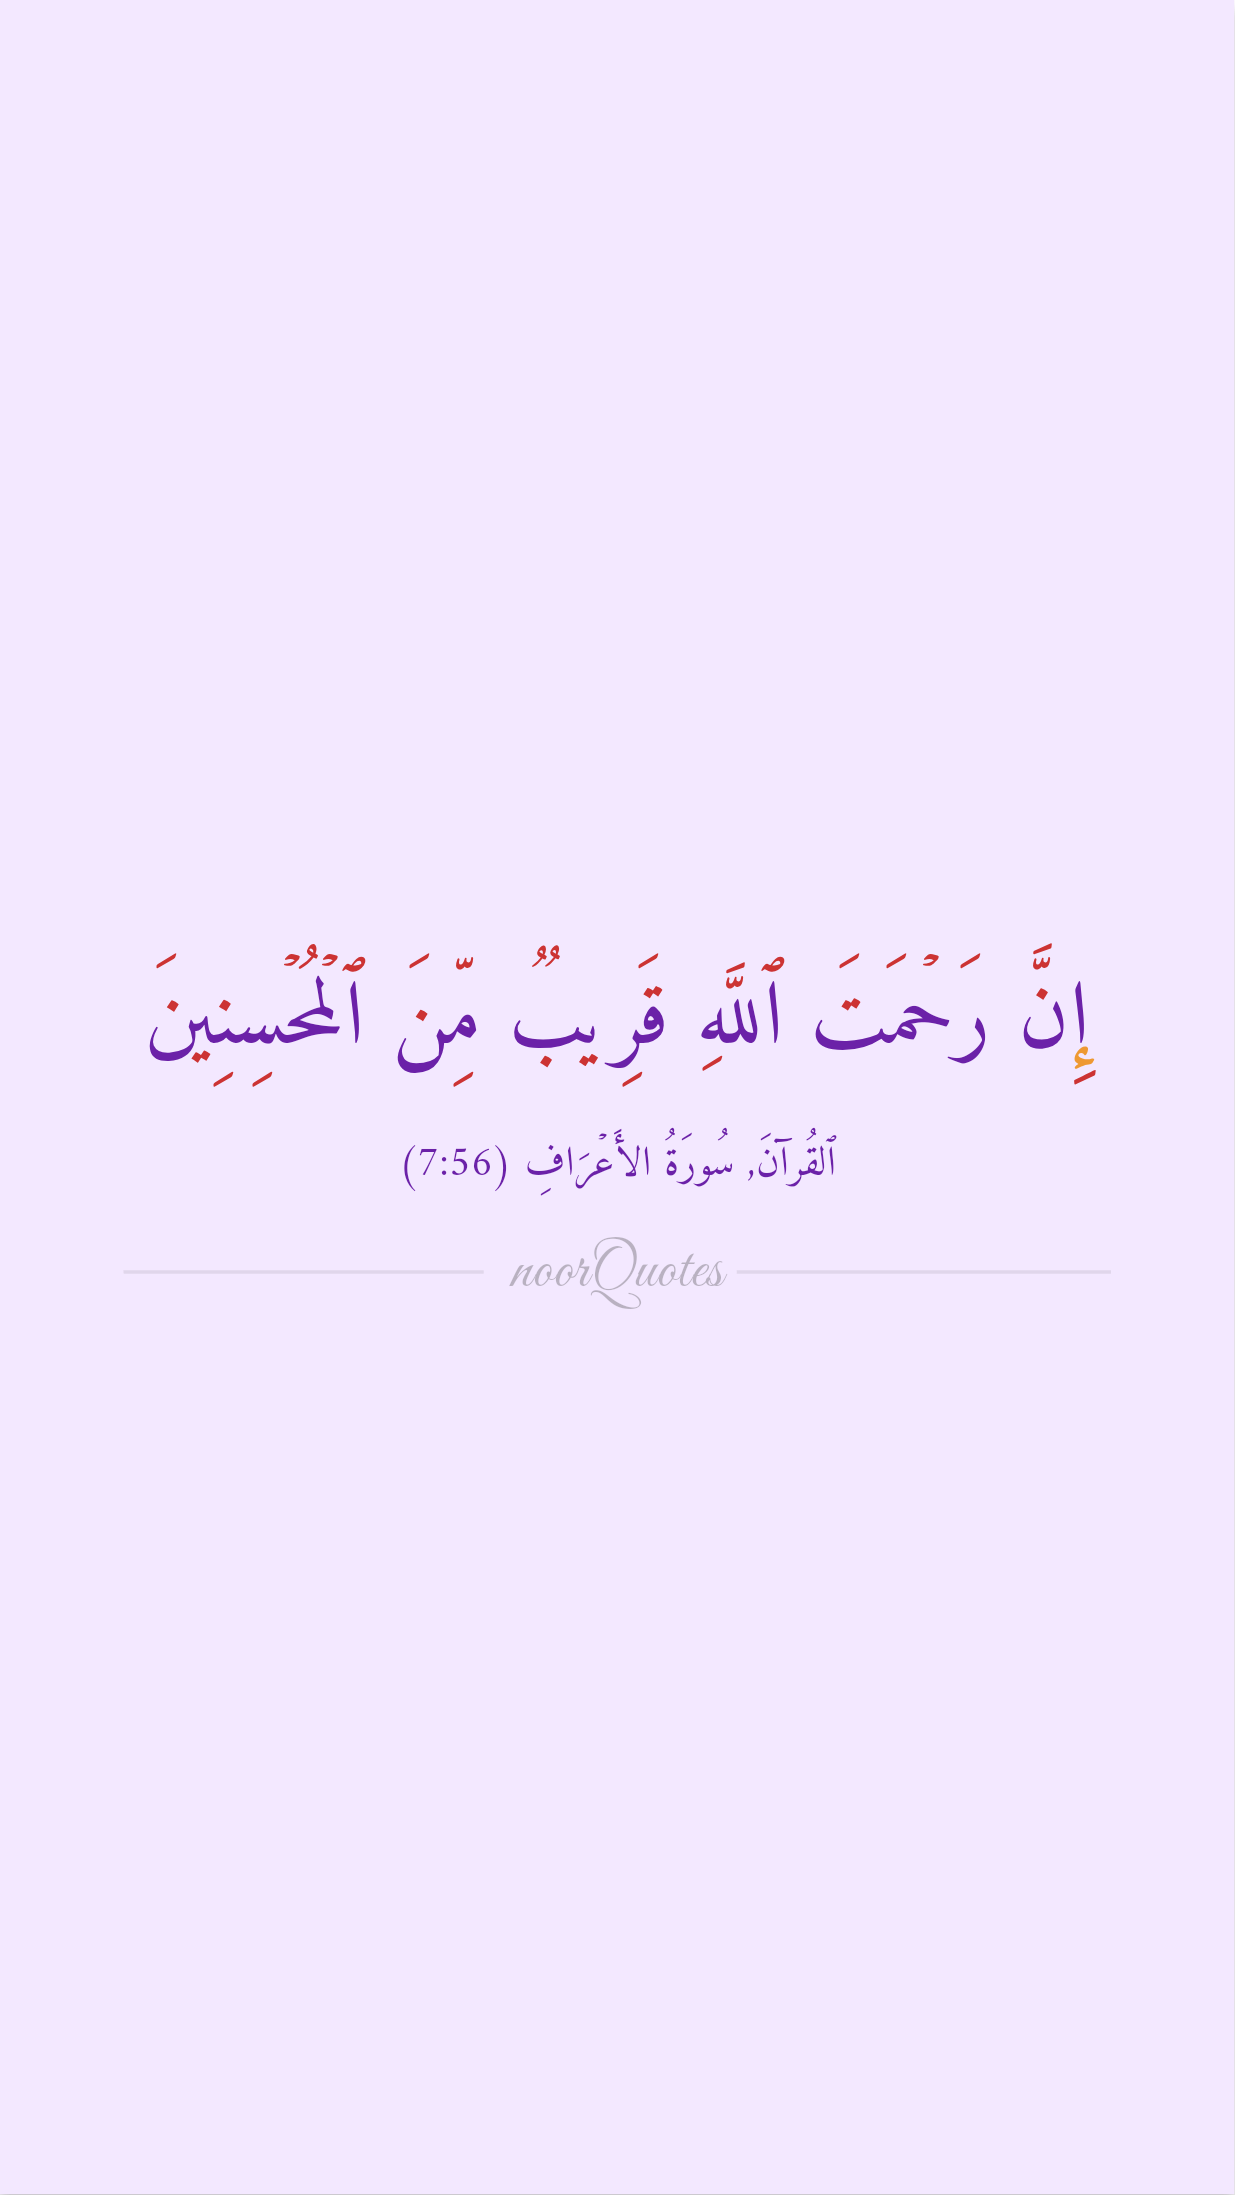 إِنَّ رَحۡمَتَ ٱللَّهِ قَرِيبٌ مِّنَ ٱلۡمُحۡسِنِينَ
ٱلقُرآنَ, سُورَةُ الأَعۡرَافِ (7:56)
noorQuotes